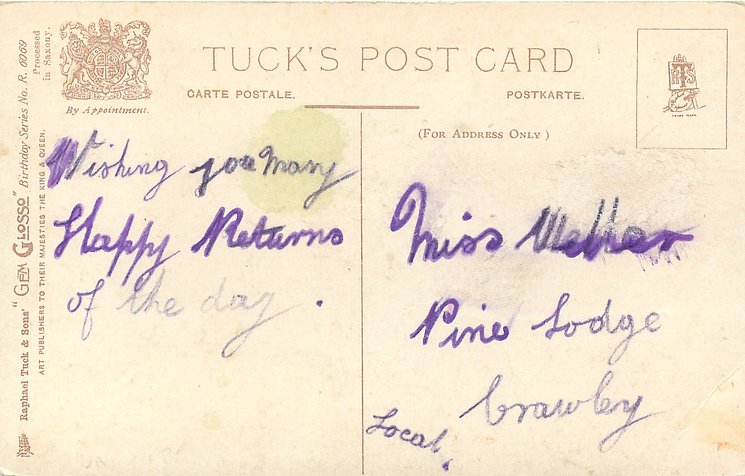 TUCK'S POST CARD
CARTE POSTALE.
POSTKARTE.
By Appointment.
(FOR ADDRESS ONLY)
Wishing you Many
Happy Returns
of the day.
Miss
Pine Lodge
Crawley
Local.
Raphael Tuck & Sons' "GEM GLOSSO" Birthday Series No. R. 6069
ART PUBLISHERS TO THEIR MAJESTIES THE KING & QUEEN.
Processed
in Saxony.
TRADE MARK